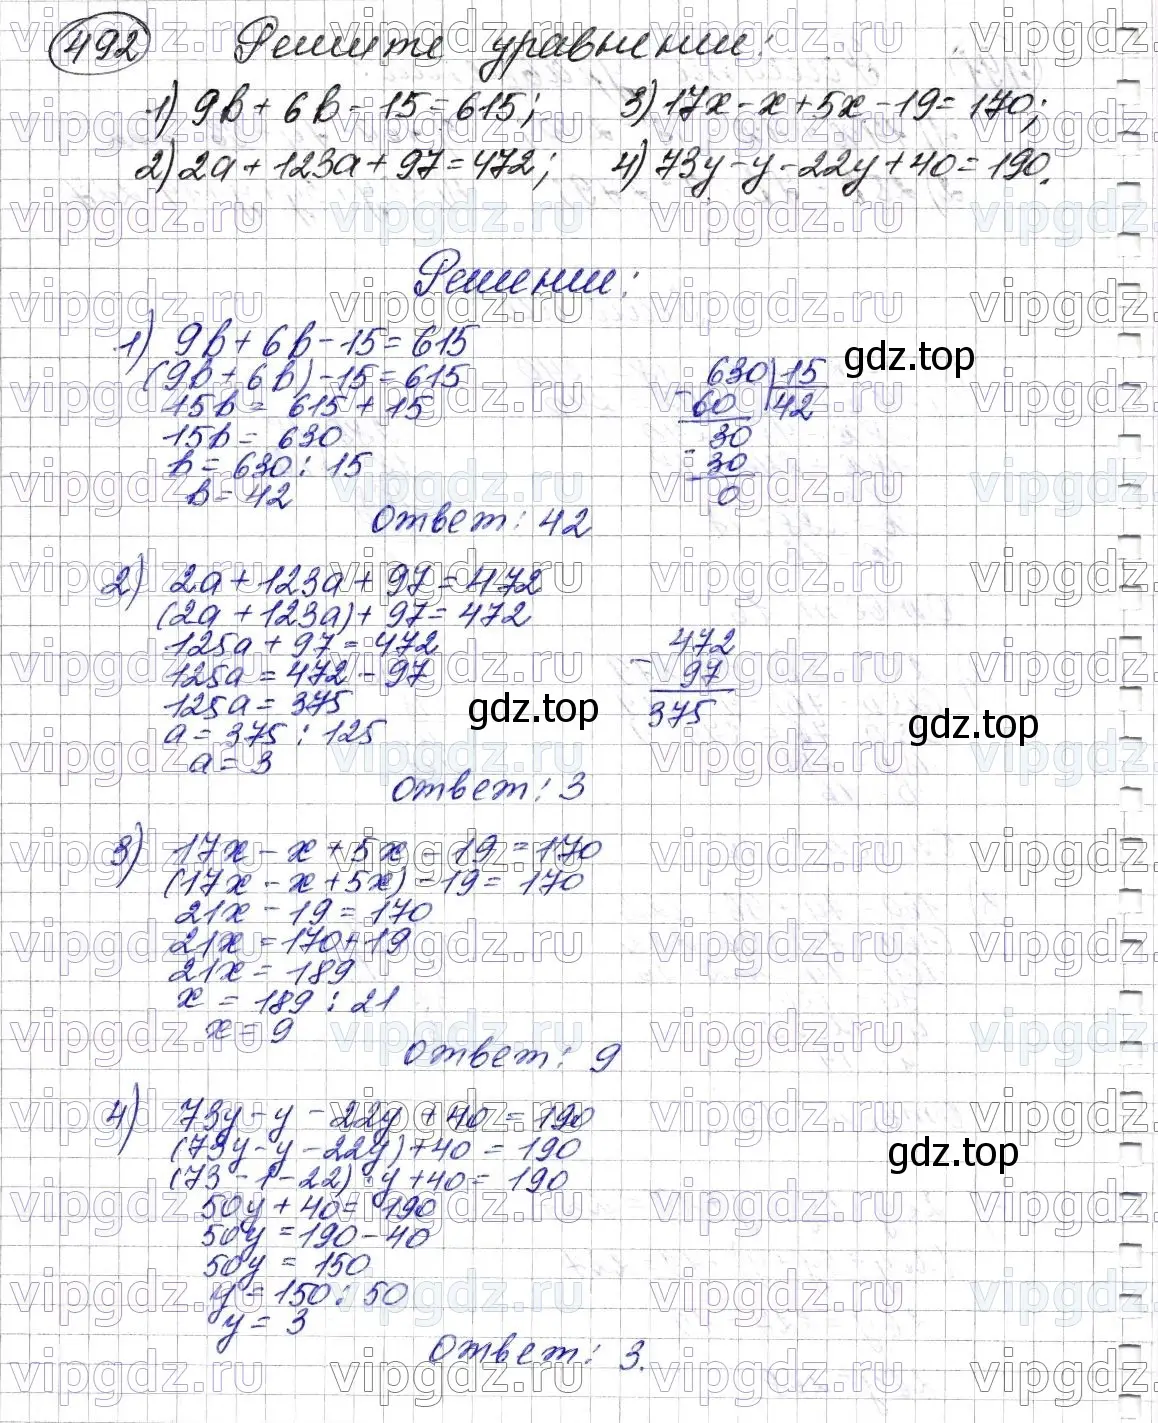 492 Решите уравнения:
1) 9b + 6b - 15 = 615; 3) 17x - x + 5x - 19 = 170;
2) 2a + 123a + 97 = 472; 4) 73y - y - 22y + 40 = 190.
Решении:
1) 9b + 6b - 15 = 615
(9b + 6b) - 15 = 615
15b = 615 + 15
15b = 630
b = 630 : 15
b = 42
630 | 15
- 60 | 42
30
- 30
0
gdz.top
Ответ: 42
2) 2a + 123a + 97 = 472
(2a + 123a) + 97 = 472
125a + 97 = 472
125a = 472 - 97
125a = 375
a = 375 : 125
a = 3
472
- 97
375
gdz.top
gdz.top
Ответ: 3
3) 17x - x + 5x - 19 = 170
(17x - x + 5x) - 19 = 170
21x - 19 = 170
21x = 170 + 19
21x = 189
x = 189 : 21
x = 9
Ответ: 9
4) 73y - y - 22y + 40 = 190
(73y - y - 22y) + 40 = 190
(73 - 1 - 22) · y + 40 = 190
50y + 40 = 190
50y = 190 - 40
50y = 150
y = 150 : 50
y = 3
gdz.top
Ответ: 3.
vipgdz.ru